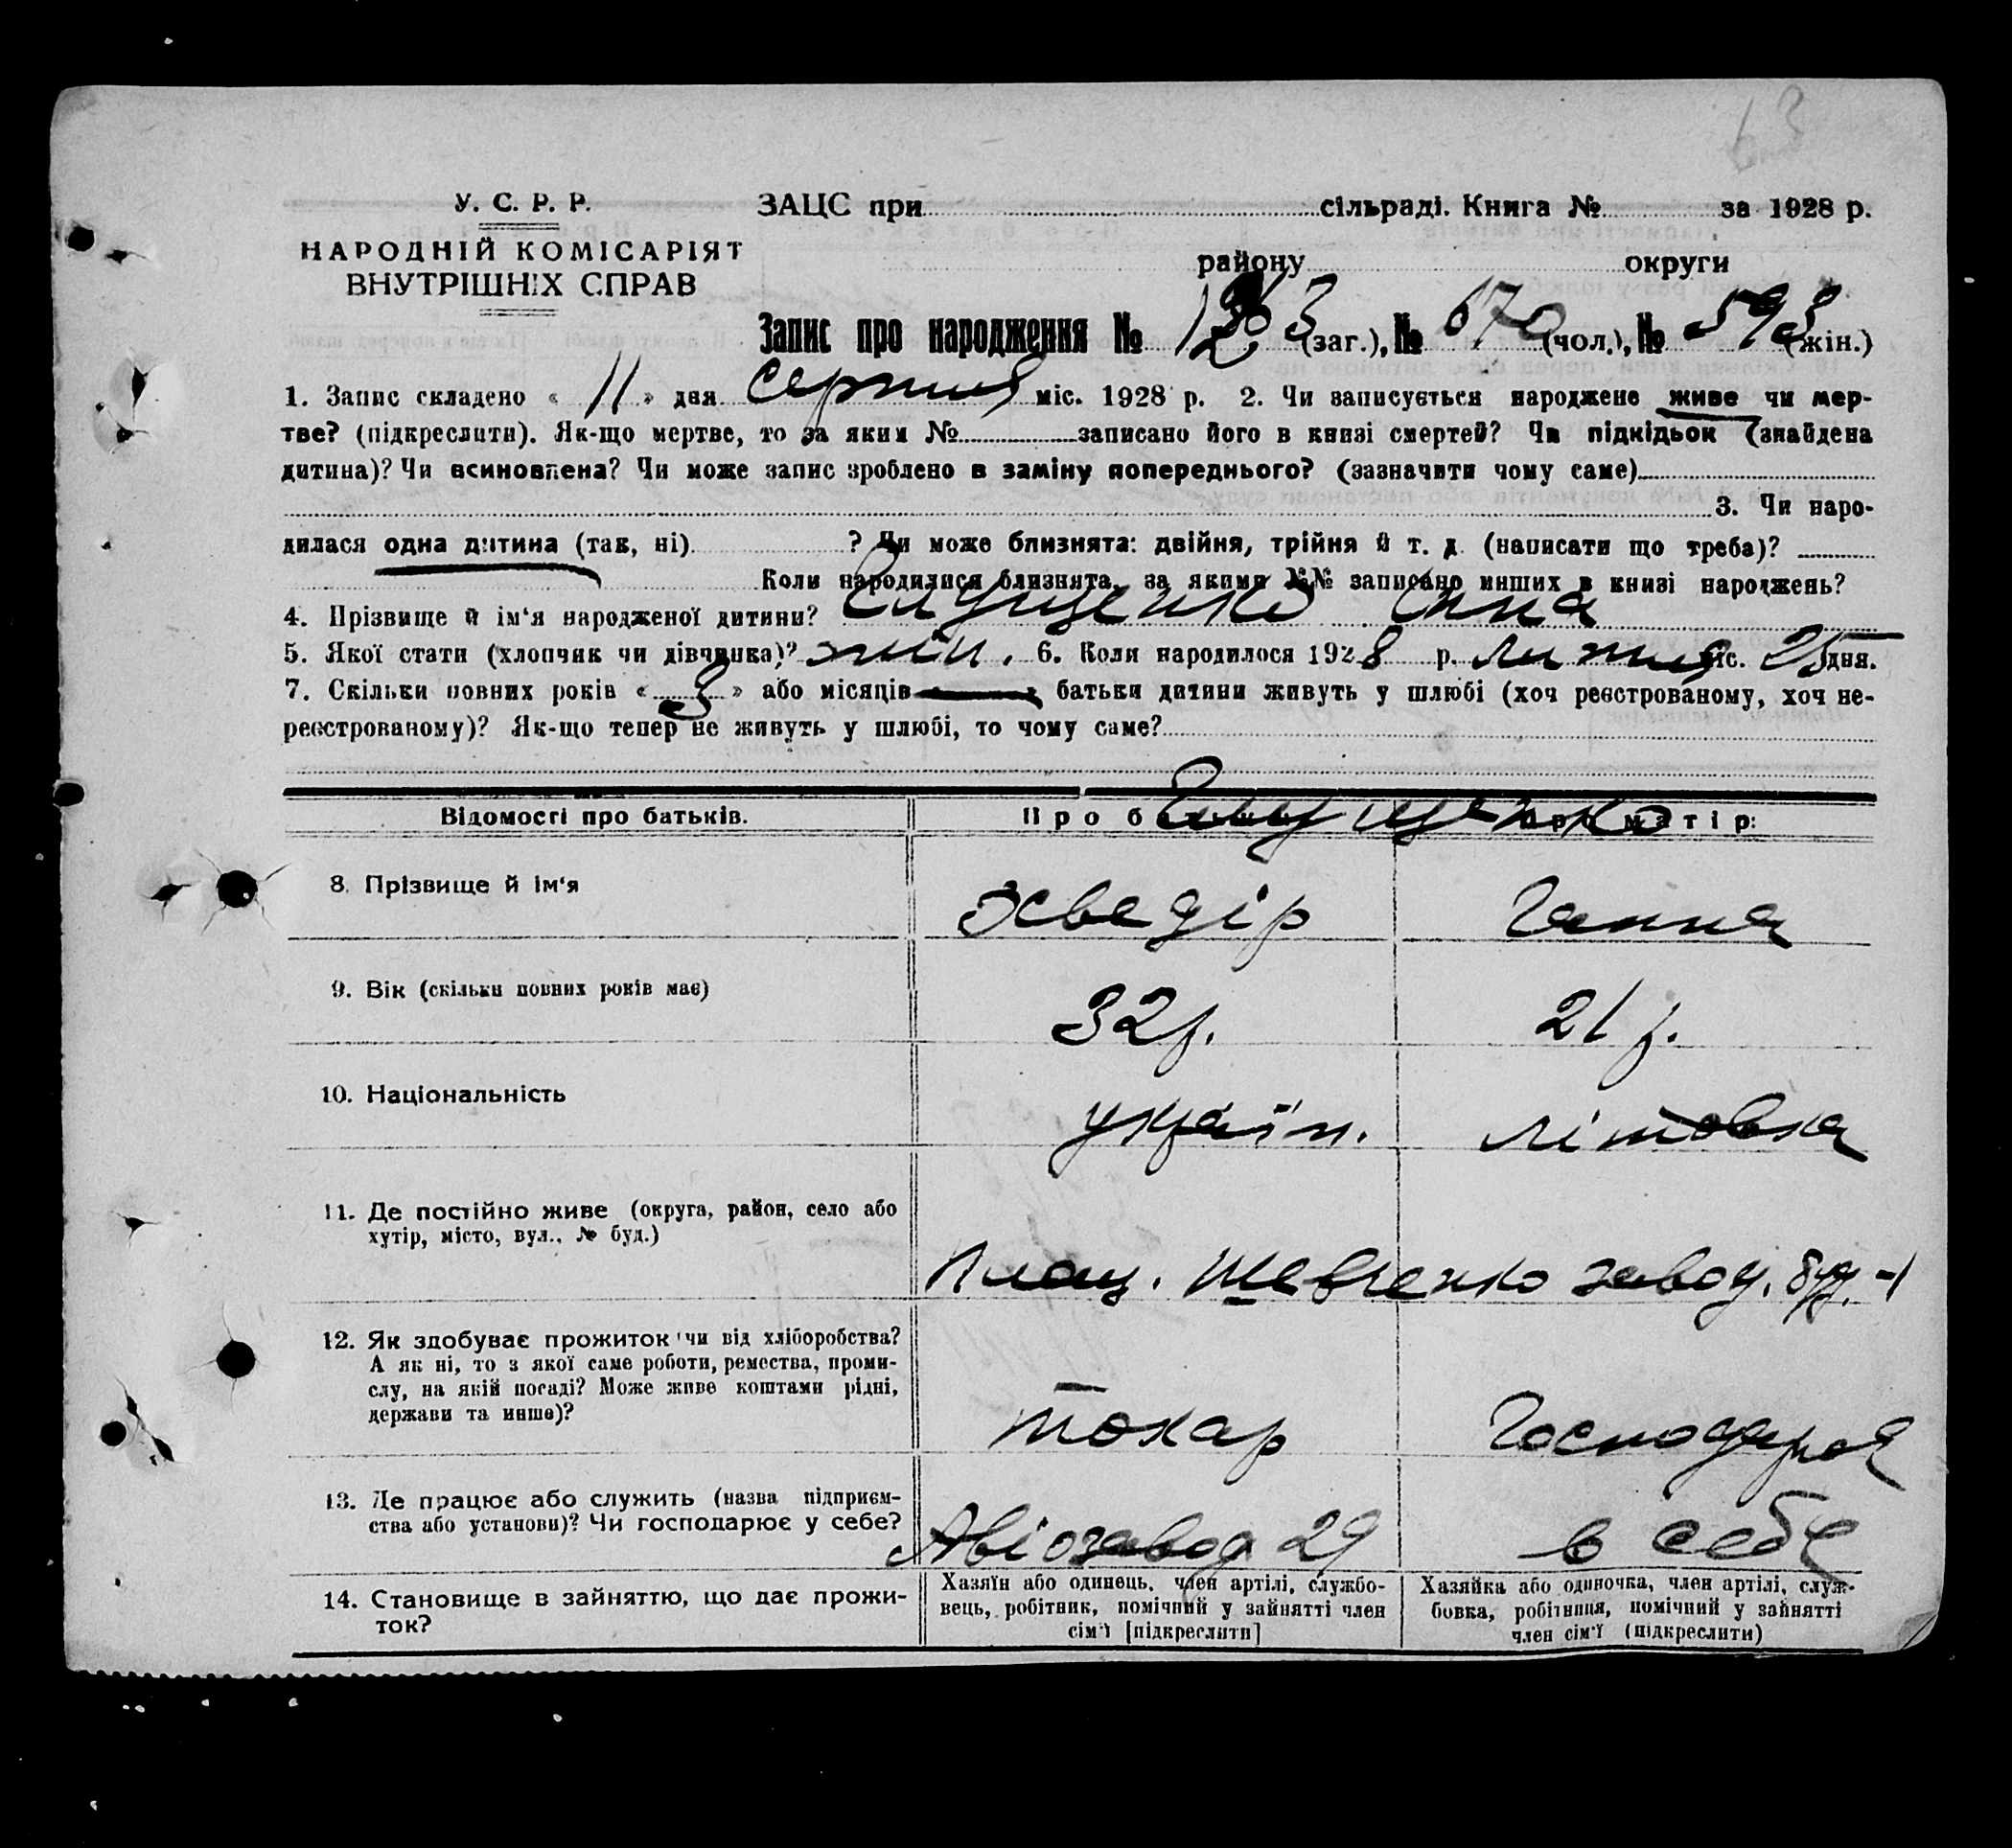 63
У. С. Р. Р.
НАРОДНІЙ КОМІСАРІЯТ
ВНУТРІШНІХ СПРАВ
ЗАЦС при сільраді. Книга № за 1928 р.
району округи
Запис про народження № 1263 (заг.), № 670 (чол.), № 593 (жін.)
1. Запис складено « 11 » дня серпня міс. 1928 р. 2. Чи записується народжене живе чи мер-
тве? (підкреслити). Як-що мертве, то за яким № записано його в книзі смертей? Чи підкідьок (знайдена
дитина)? Чи всиновлена? Чи може запис зроблено в заміну попереднього? (зазначити чому саме)
3. Чи наро-
дилася одна дитина (так, ні) ? Чи може близнята: двійня, трійня й т. д. (написати що треба)?
Коли народилися близнята, за якими №№ записано инших в книзі народжень?
4. Прізвище й ім'я народженої дитини?
5. Якої стати (хлопчик чи дівчинка)? жін. 6. Коли народилося 1928 р. липня міс. 25 дня.
7. Скільки повних років « 3 » або місяців батьки дитини живуть у шлюбі (хоч реєстрованому, хоч не-
реєстрованому)? Як-що тепер не живуть у шлюбі, то чому саме?
Відомості про батьків. Про батька: Про матір:
8. Прізвище й ім'я Ганна
9. Вік (скільки повних років має) 32 р. 21 р.
10. Національність україн. літовка
11. Де постійно живе (округа, район, село або
хутір, місто, вул., № буд.)
Площ. Шевченко завод. буд. -1
12. Як здобуває прожиток чи від хліборобства?
А як ні, то з якої саме роботи, ремества, проми-
слу, на якій посаді? Може живе коштами рідні,
держави та инше)?
токар Господарка
13. Де працює або служить (назва підприєм-
ства або установи)? Чи господарює у себе?
Авіозавод 29 в себе
14. Становище в зайняттю, що дає прожи-
ток?
Хазяїн або одинець, член артілі, службо-
вець, робітник, помічний у зайнятті член
сім'ї [підкреслити]
Хазяйка або одиночка, член артілі, служ-
бовка, робітниця, помічний у зайнятті
член сім'ї (підкреслити)